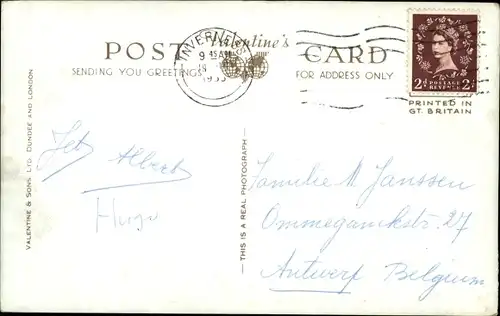 POST Valentine's CARD
SENDING YOU GREETINGS
FOR ADDRESS ONLY
INVERNESS
9 15 AM
19
1955
2D POSTAGE REVENUE 2D
PRINTED IN
GT. BRITAIN
VALENTINE & SONS, LTD. DUNDEE AND LONDON
— THIS IS A REAL PHOTOGRAPH —
Jef Albert
Hugo
Familie M Janssen
Ommeganckstr. 27
Antwerp Belgium